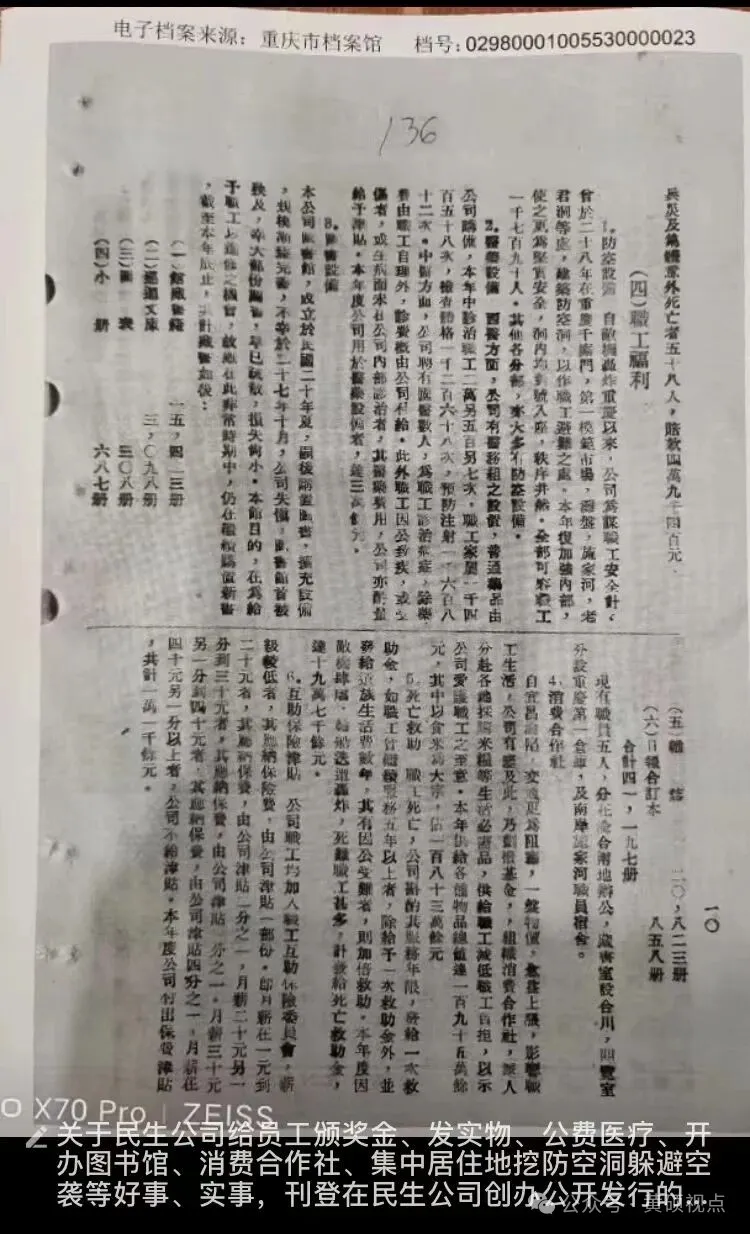 电子档案来源：重庆市档案馆 档号：02980001005530000023
136
兵災及其他意外死亡者五十八人，賠款四萬九千四百元。
(四)職工福利
1.防空設備 自敵機轟炸重慶以來，公司為謀職工安全計，
曾於二十八年在重慶千廝門，第一模範市場，施家河，老
君洞等處，建築防空洞，以作職工避難之處。本年復加強內部，
使之更為堅實安全，洞內均對號入座，秩序井然。全部可容職工
一千七百九十人。其他各分部，亦大多有防空設備。
2.醫藥設備 西醫方面，公司有醫務組之設置，普通藥品由
公司購備，本年中診治職工二萬另五百另七次，職工家屬一千四
百五十八次，檢查體格一千二百六十八次，預防注射一，六百八
十二次。中醫方面，公司聘有國醫數人，為職工診治病症，除藥
費由職工自理外，診費概由公司補給。此外職工因公致疾，或受
傷者，或生病而未在公司內部診治者，其醫藥費用，公司亦酌量
給予津貼。本年度公司用於醫藥設備者，達三萬餘元。
3.圖書設備
本公司圖書館，成立於民國二十年夏，嗣後購置圖書，擴充設備
，規模漸臻完善，不幸於二十七年十月，公司失慎，圖書館首被
殃及，幸大部份圖書，早已疏散，損失尚小。本館目的，在為給
予職工以進修之機會，故雖在此非常時期中，仍在繼續購置新書
，截至本年底止，共計藏書如後：
(一)館藏書籍 一五，四二三册
(二)巡迴文庫 三，〇九八册
(三)圖 表 三〇八册
(四)小 册 六八七册
一〇
(五)雜 誌 二〇，八二三册
(六)日報合訂本 八五八册
合計四一，一九七册
現有職員五人，分在渝合兩地辦公，藏書室設合川，閱覽室
分設重慶第一倉庫，及南岸施家河職員宿舍。
4.消費合作社
自宜昌淪陷，交通更為阻塞，一般物價，愈益上漲，影響職
工生活，公司有鑒及此，乃劃撥基金，組織消費合作社，派人
分赴各地採購米糧等生活必需品，供給職工減低職工負担，以示
公司愛護職工之至意。本年供給各種物品總值達一百九十五萬餘
元，其中以食米為大宗，佔一百八十三萬餘元
5.死亡救助 職工死亡，公司斟酌其服務年限，發給一次救
助金，如職工曾繼續服務五年以上者，除給予一次救助金外，並
發給遺族生活費數年，其有因公受難者，則加倍救助。本年度因
敵機肆虐，輪船迭遭轟炸，死難職工甚多，計發給死亡救助金，
達十九萬七千餘元。
6.互助保險津貼 公司職工均加入職工互助保險委員會，薪
級較低者，其應納保險費，由公司津貼一部份。即月薪在一元到
二十元者，其應納保費，由公司津貼二分之一，月薪二十元另一
分到三十元者，其應納保費，由公司津貼三分之一。月薪三十元
另一分到四十元者，其應納保費，由公司津貼四分之一，月薪在
四十元另一分以上者，公司不給津貼。本年度公司付出保費津貼
，共計一萬一千餘元。
X70 Pro | ZEISS
关于民生公司给员工颁奖金、发实物、公费医疗、开
办图书馆、消费合作社、集中居住地挖防空洞躲避空
袭等好事、实事，刊登在民生公司创办公开发行的...
公众号·黄硕视点